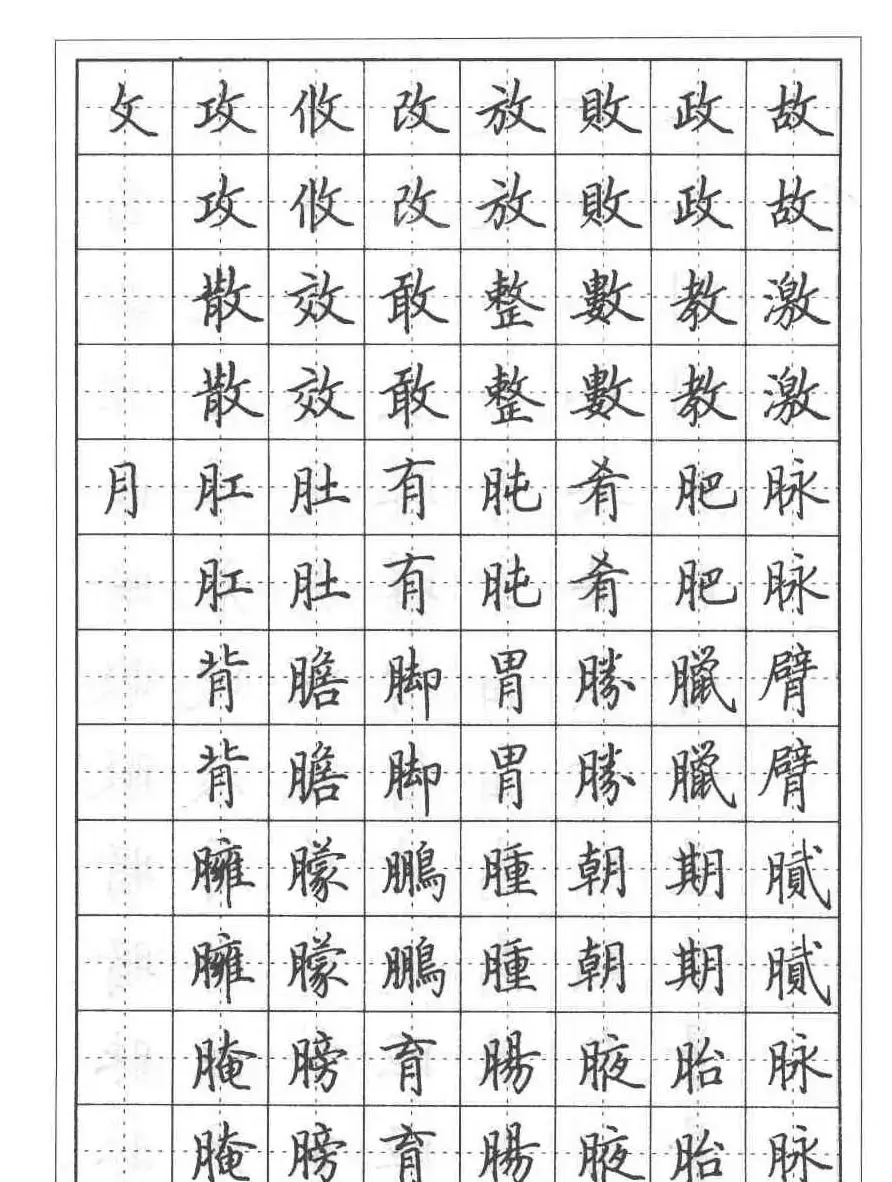 攵 攻 攸 改 放 敗 政 故
攻 攸 改 放 敗 政 故
散 效 敢 整 數 教 激
散 效 敢 整 數 教 激
月 肛 肚 有 肫 肴 肥 脉
肛 肚 有 肫 肴 肥 脉
背 膽 脚 胃 勝 臘 臂
背 膽 脚 胃 勝 臘 臂
臃 朦 鵬 腫 朝 期 膩
臃 朦 鵬 腫 朝 期 膩
腌 膀 育 腸 腋 胎 脉
腌 膀 育 腸 腋 胎 脉